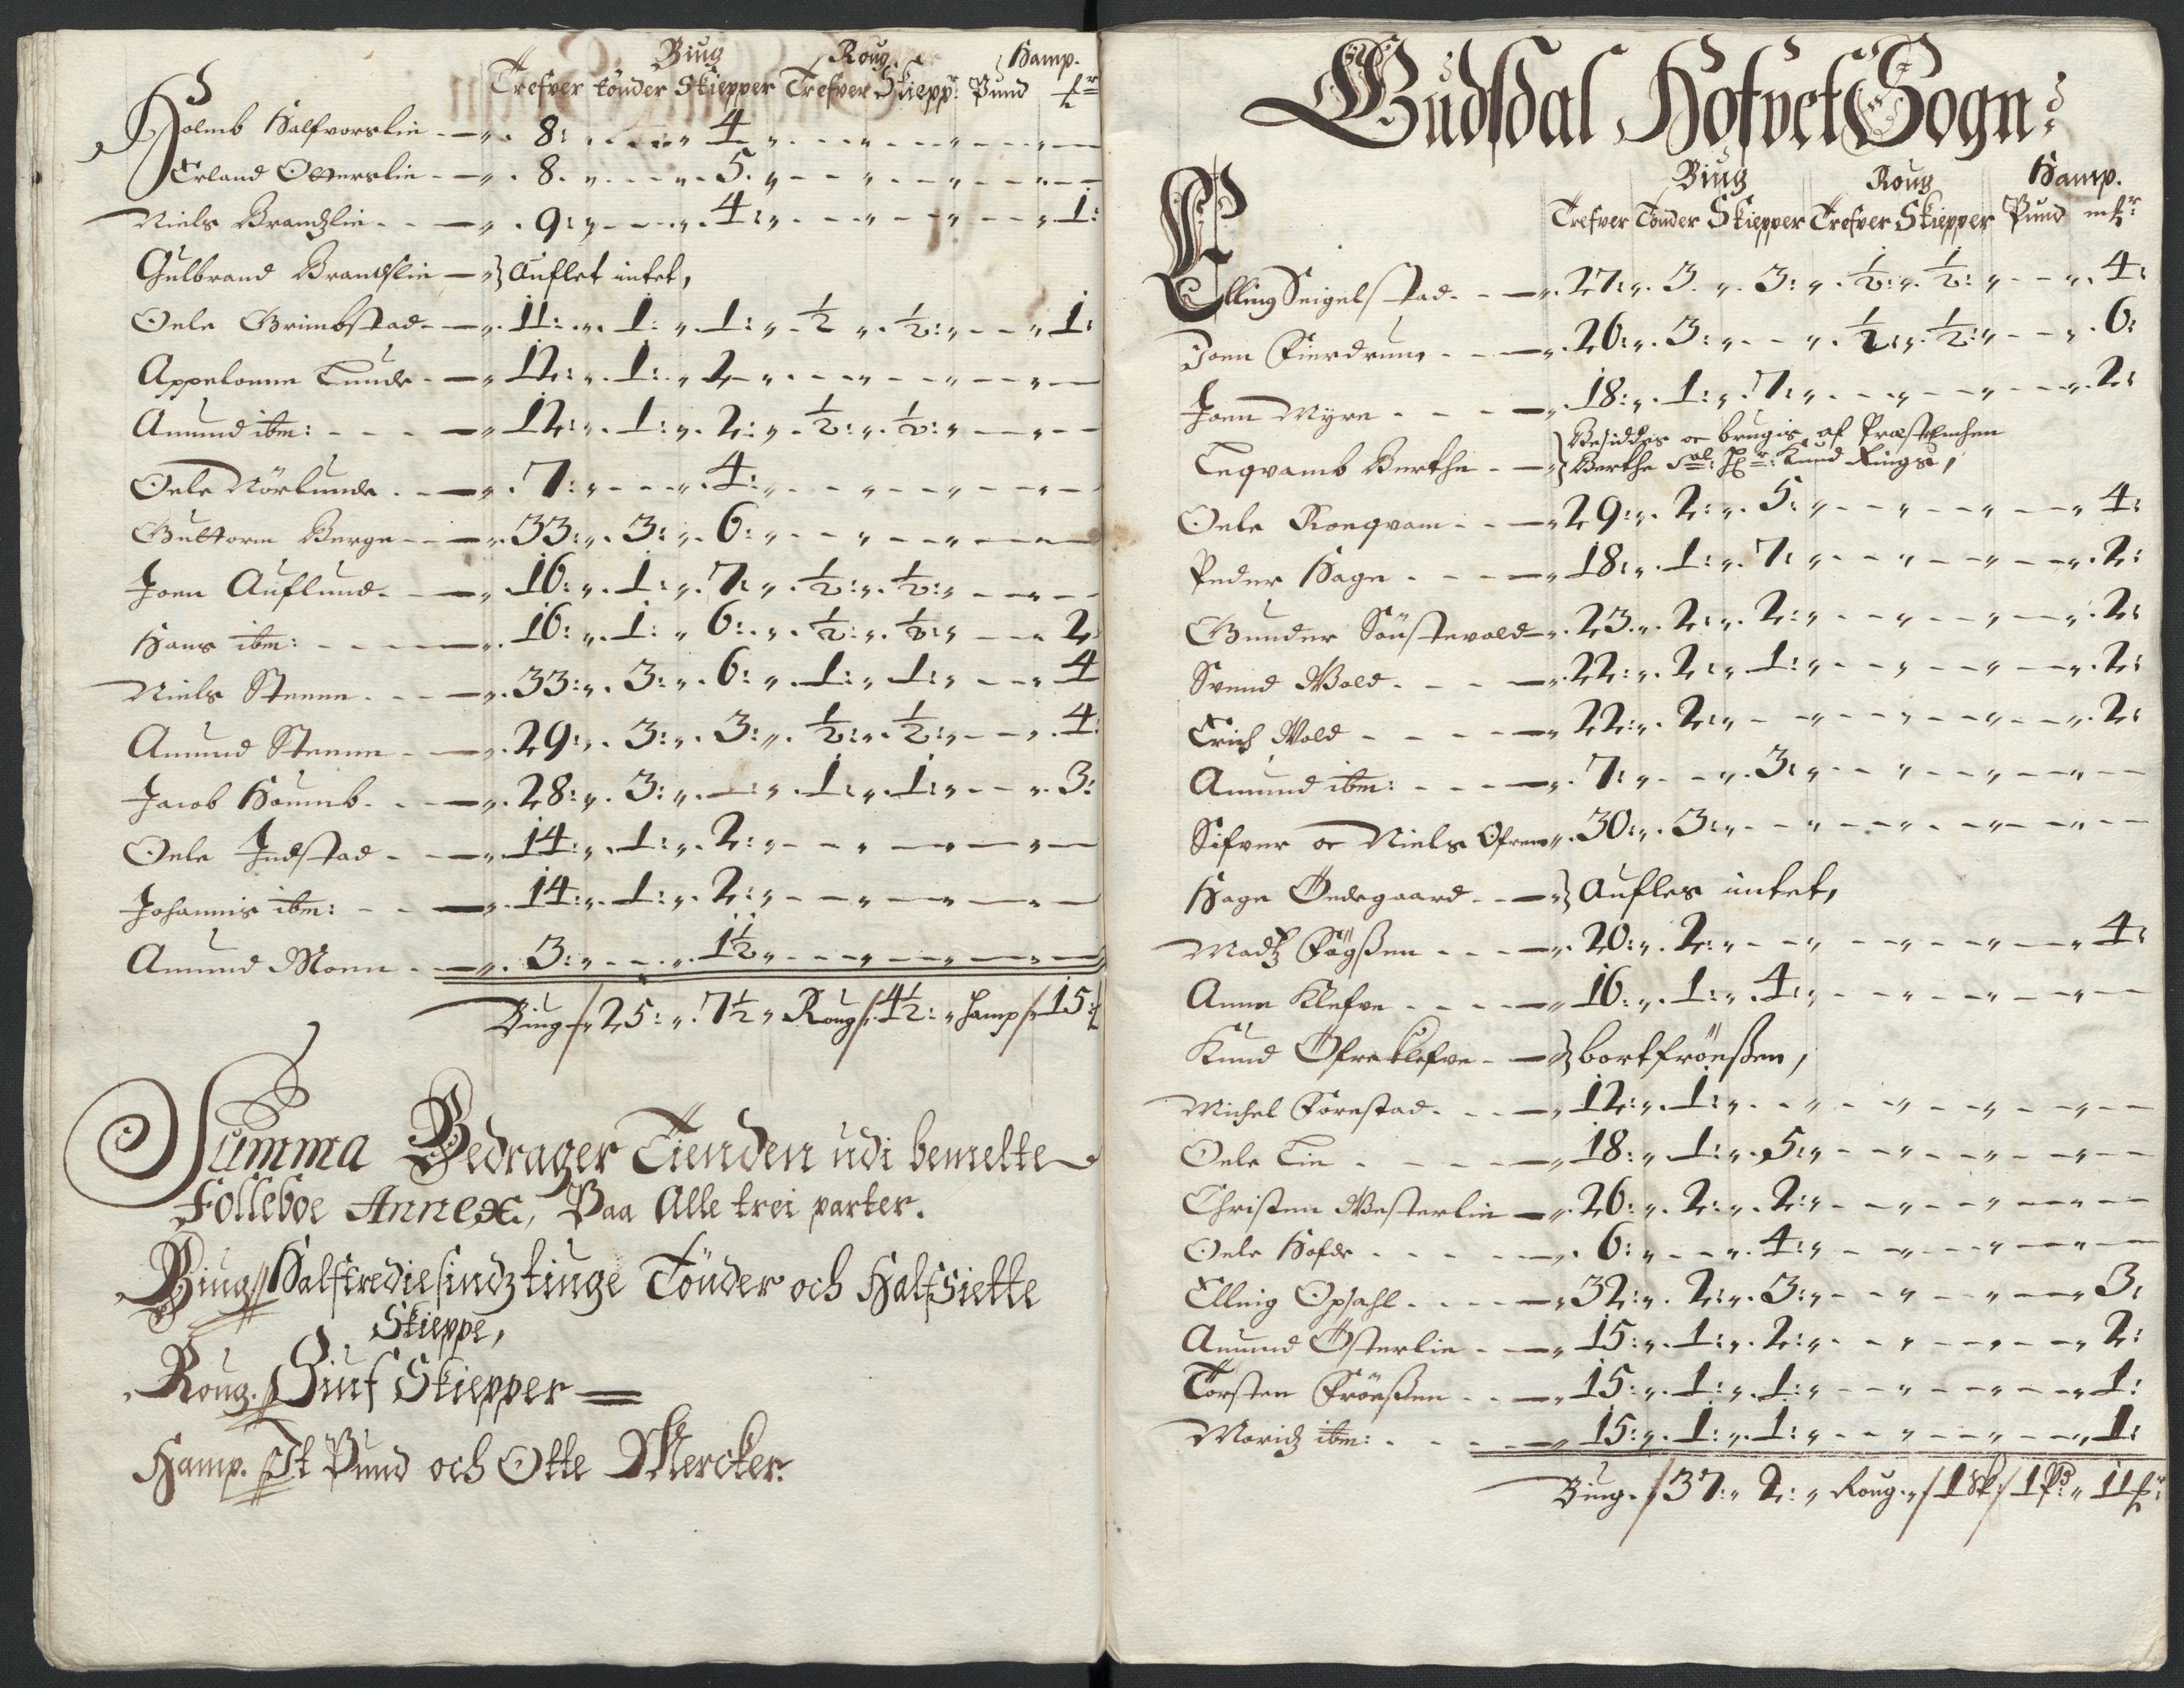 Biug Roug Hamp.
Trefver tönder Skiepper Trefver Skiepr: Pund
Holmb Halfvorslie - 8: 4
Erland Otterslie - 8. 5.
Niels Brandzlie - 9: 4: 1:
Gulbrand Brandslie - Auflet intet,
Oele Grimbstad - 11: 1: 1: ½ ½: 1:
Appelonne Lunde - 12: 1: 2
Amund ibm: - 12: 1: 2: ½: ½:
Oele Nörlunde - 7: 4:
Guttorm Berge - 33: 3: 6:
Joen Auflund - 16: 1: 7: ½: ½:
Hans ibm: - 16: 1: 6: ½: ½: 2
Niels Steene - 33: 3: 6: 1: 1: 4
Amund Steene - 29: 3: 3: ½: ½: 4:
Jacob Houmb - 28: 3: - 1: 1: 3:
Oele Indstad - 14: 1: 2:
Johannis ibm: - 14: 1: 2:
Amund Moen - 3: 1½
Biug 25: 7½ Roug 4½: Hamp 15:
Summa Bedrager Tienden udi bemelte
Folleboe Annex, Paa Alle trei parter.
Biug Halftrediesindztiuge Tönder och Halfsiette
Skieppe,
Roug. Siuf Skiepper
Hamp. It Pund och Otte Mercker.
Gudsdal Hofvet Sogn:
Biug Roug Hamp.
Trefver Tönder Skiepper Trefver Skiepper Pund mkr:
Elling Seigelstad - 27: 3. 3: ½: ½: 4:
Joen Fierdrum - 26: 3: ½: ½: 6:
Joen Myre - 18: 1: 7: 2:
Besiddes oc brugis af Præstenchen
Teqvamb Berthe - Berthe Sal: Hr: Knud Rings,
Oele Roeqvam - 29: 2: 5: 4:
Peder Hage - 18: 1: 7: 2:
Gunder Sönstevold - 23. 2: 2: 2:
Svend Wold - 22: 2: 1: 2:
Erich Wold - 22: 2: 2:
Amund ibm: - 7: 3:
Sifver oc Niels Öfren - 30: 3:
Hage Ödegaard - Aufles intet,
Madz Fögßen - 20: 2: 4:
Anne Klefve - 16: 1: 4:
Knud Öfre Klefve - bortfrönßen,
Michel Forestad - 12: 1:
Oele Lie - 18: 1: 5:
Christen Westerlie - 26: 2: 2:
Oele Hofde - 6: 4:
Elling Opsahl - 32: 2: 3: 3:
Amund Österlie - 15: 1: 2: 2:
Torsten Frönßen - 15: 1: 1: 1:
Moridz ibm: - 15: 1: 1: 1:
Biug. 37: 2: Roug. 1 Sk: 1 Pd: 11